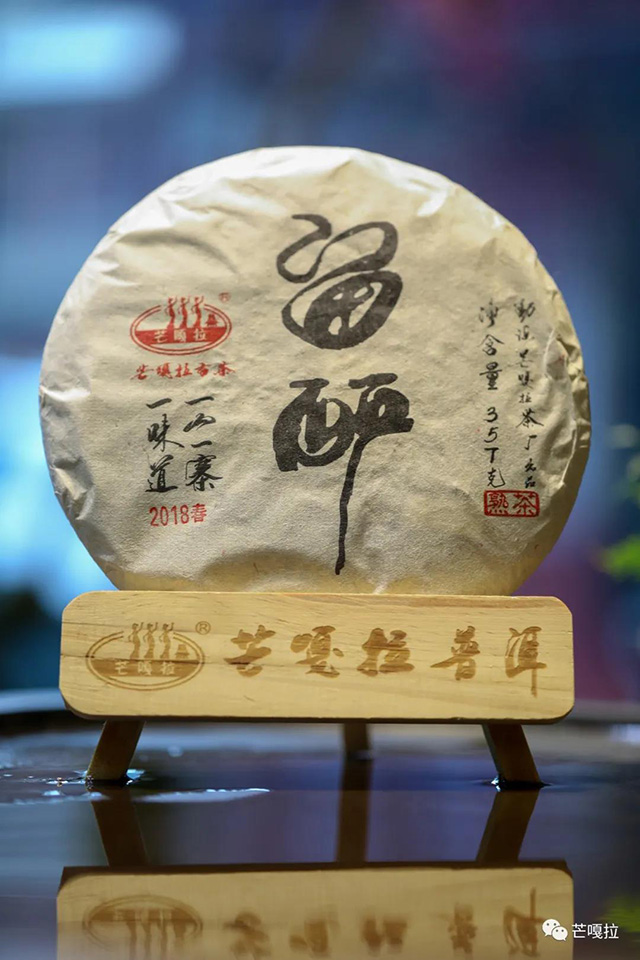 芒嘎拉
®
芒嘎拉古茶
一山一寨
一味道
2018春
勐海芒嘎拉茶厂出品
净含量 357克
熟茶
芒嘎拉
®
芒嘎拉普洱
芒嘎拉